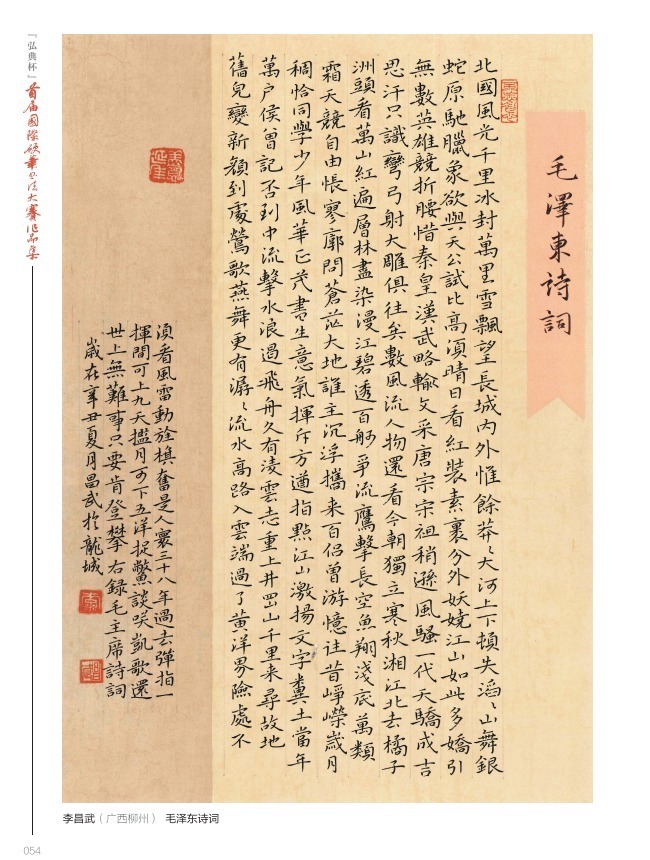 毛澤東詩詞
北國風光千里冰封萬里雪飄望長城内外惟餘莽〻大河上下頓失滔〻山舞銀
蛇原馳臘象欲與天公試比高須晴日看紅裝素裹分外妖嬈江山如此多嬌引
無數英雄競折腰惜秦皇漢武略輸文采唐宗宋祖稍遜風騷一代天驕成吉
思汗只識彎弓射大雕俱往矣數風流人物還看今朝獨立寒秋湘江北去橘子
洲頭看萬山紅遍層林盡染漫江碧透百舸爭流鷹擊長空魚翔淺底萬類
霜天競自由悵寥廓問蒼茫大地誰主沉浮攜来百侶曾游憶往昔崢嶸歲月
稠恰同學少年風華正茂書生意氣揮斥方遒指點江山激揚文字糞土當年
萬户侯曾記否到中流擊水浪遏飛舟久有凌雲志重上井岡山千里来尋故地
舊皃變新顏到處鶯歌燕舞更有潺〻流水高路入雲端過了黄洋界險處不
須看風雷動旌旗奮是人寰三十八年過去彈指一
揮間可上九天攬月可下五洋捉鱉談笑凱歌還
世上無難事只要肯登攀右録毛主席詩詞
歲在辛丑夏月昌武於龍城
『弘典杯』首届國際硬筆书法大赛作品集
李昌武（广西柳州） 毛泽东诗词
054